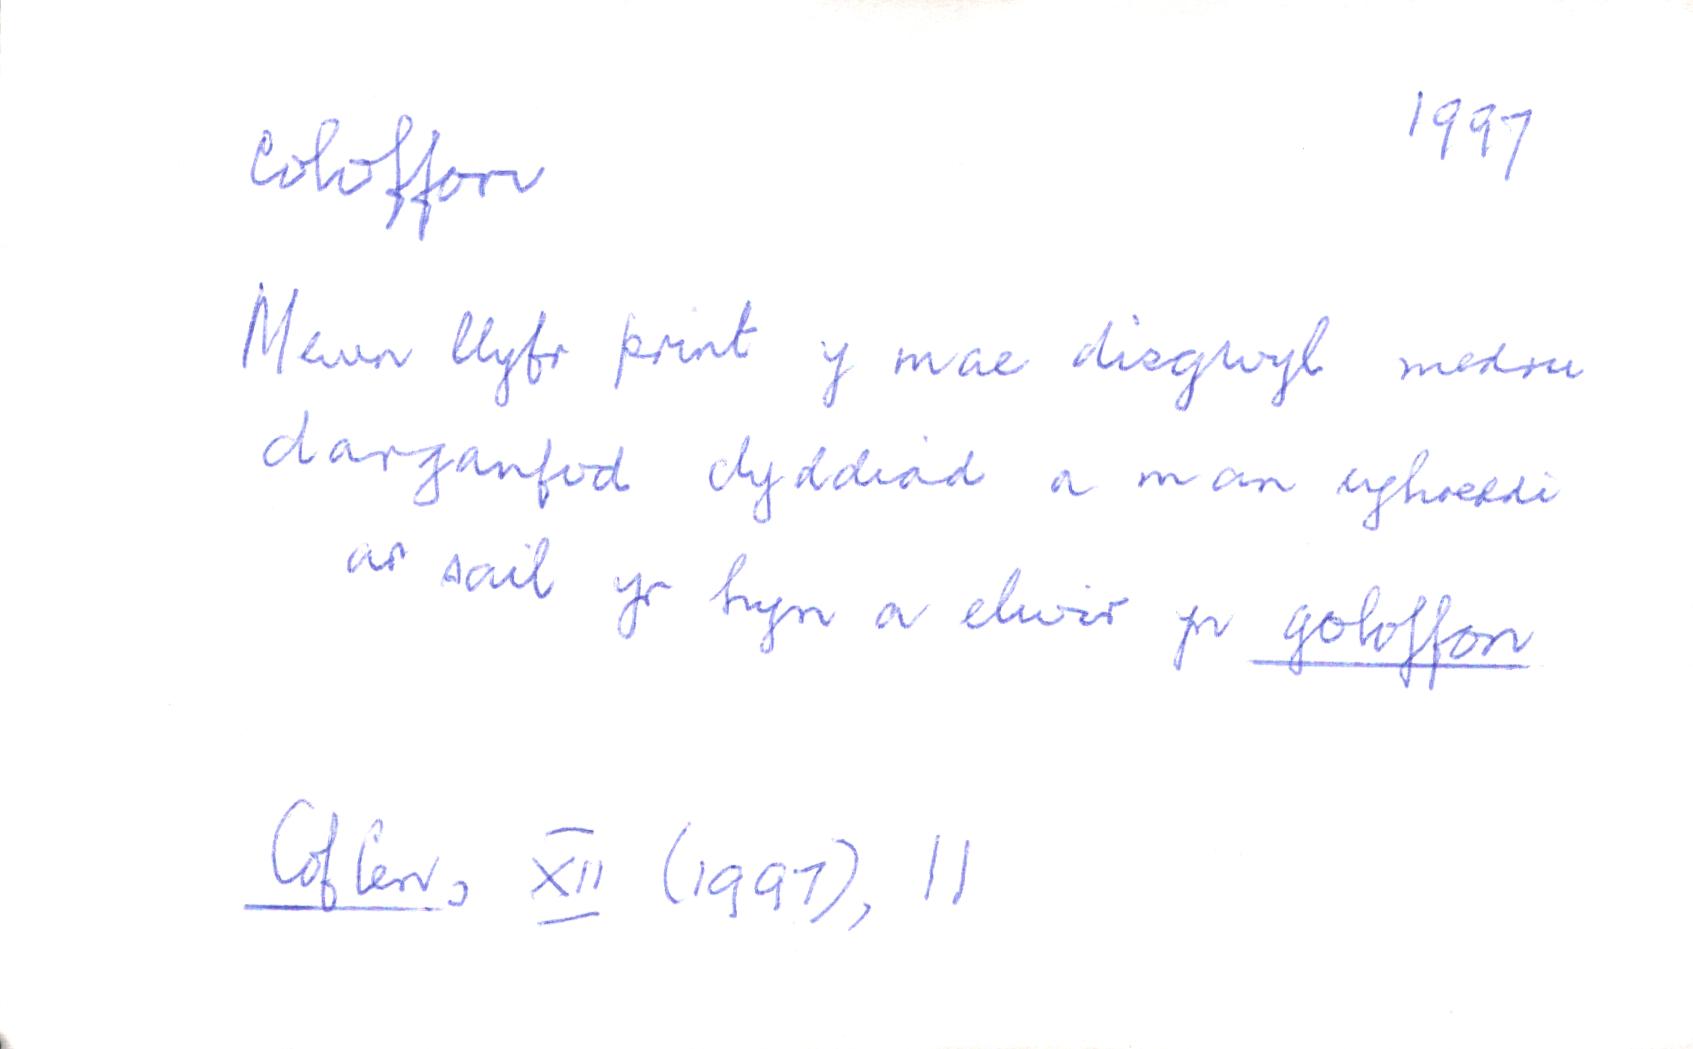 coloffon 1997
Mewn llyfr print y mae disgwyl medru
darganfod dyddiad a man cyhoeddi
ar sail yr hyn a elwir yn goloffon
Cof Cen, XII (1997), 11